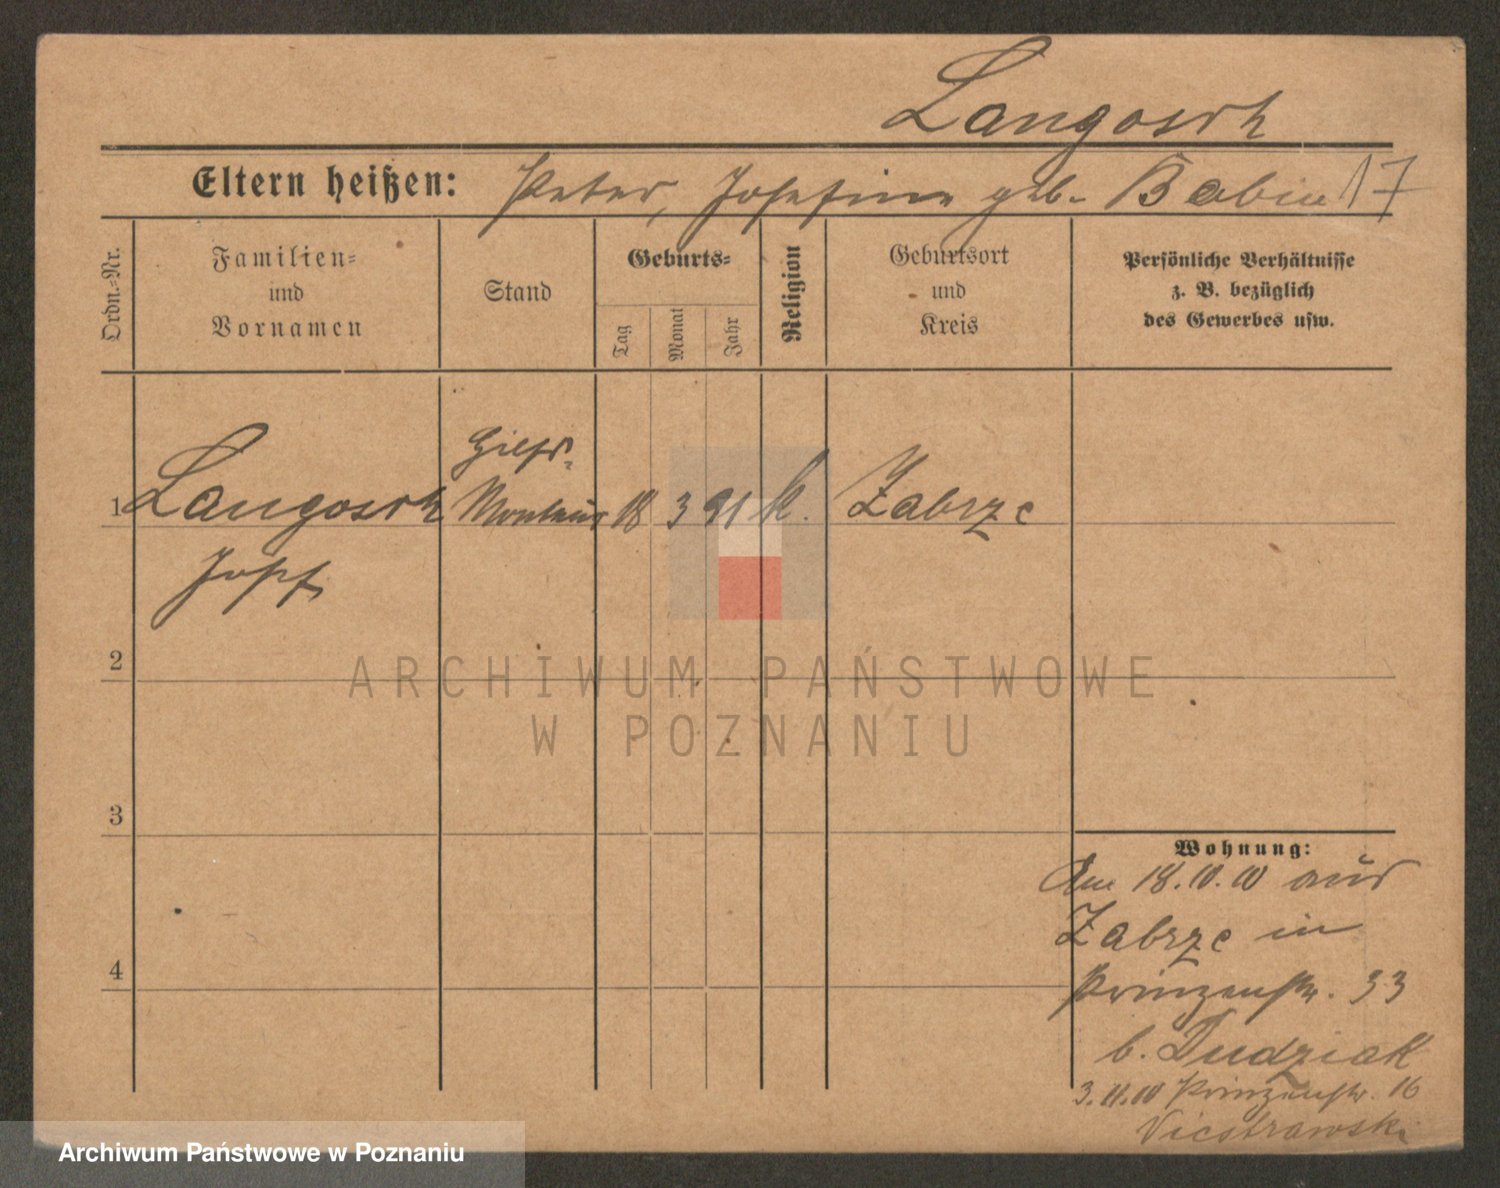 Langosch
Eltern heißen: Peter, Josefine geb. Babin 17
Ordn.-Nr.
Familien-
und
Vornamen
Stand
Geburts-
Tag
Monat
Jahr
Religion
Geburtsort
und
Kreis
Persönliche Verhältnisse
z. B. bezüglich
des Gewerbes usw.
1 Langosch Hilfs- Monteur 18 3 91 k. Zabrze
Josef
2
3
4
Wohnung:
Am 18.10.10 aus
Zabrze in
Prinzenstr. 33
b. Dudziak
3.11.10 Prinzenstr. 16
ARCHIWUM PAŃSTWOWE
W POZNANIU
Archiwum Państwowe w Poznaniu